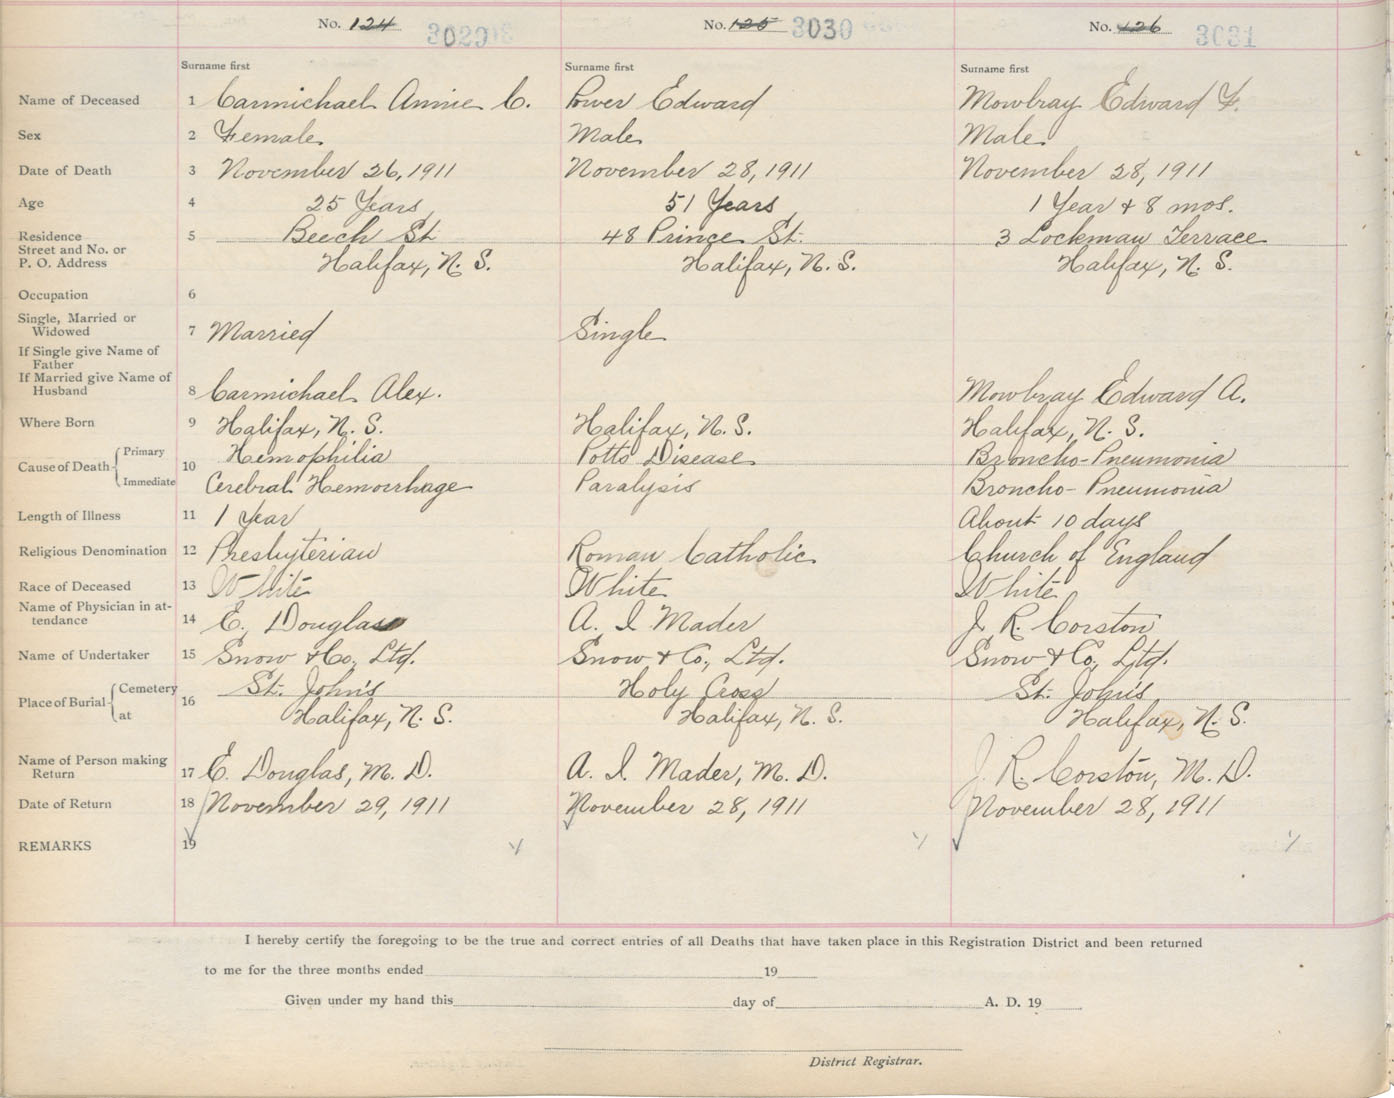 No. 124 3029 No. 125 3030 No. 126 3031
Surname first Surname first Surname first
Name of Deceased 1 Carmichael Annie C. Power Edward Mowbray Edward F.
Sex 2 Female Male Male
Date of Death 3 November 26, 1911 November 28, 1911 November 28, 1911
Age 4 25 Years 51 Years 1 Year + 8 mos.
Residence 5 Beech St 48 Prince St. 3 Lockman Terrace
Street and No. or
P. O. Address Halifax, N. S. Halifax, N. S. Halifax, N. S.
Occupation 6
Single, Married or
Widowed 7 Married Single
If Single give Name of
Father
If Married give Name of
Husband 8 Carmichael Alex. Mowbray Edward A.
Where Born 9 Halifax, N. S. Halifax, N. S. Halifax, N. S.
Cause of Death Primary 10 Hemophilia Potts Disease Broncho-Pneumonia
Immediate Cerebral Hemorrhage Paralysis Broncho-Pneumonia
Length of Illness 11 1 Year About 10 days
Religious Denomination 12 Presbyterian Roman Catholic Church of England
Race of Deceased 13 White White White
Name of Physician in at-
tendance 14 E. Douglas A. I Mader J. R. Corston
Name of Undertaker 15 Snow & Co., Ltd. Snow & Co., Ltd. Snow & Co., Ltd.
Place of Burial Cemetery 16 St. John's Holy Cross St. John's
at Halifax, N. S. Halifax, N. S. Halifax, N. S.
Name of Person making
Return 17 E. Douglas, M. D. A. I. Mader, M. D. J. R. Corston, M. D.
Date of Return 18 November 29, 1911 November 28, 1911 November 28, 1911
REMARKS 19
I hereby certify the foregoing to be the true and correct entries of all Deaths that have taken place in this Registration District and been returned
to me for the three months ended 19
Given under my hand this day of A. D. 19
District Registrar.